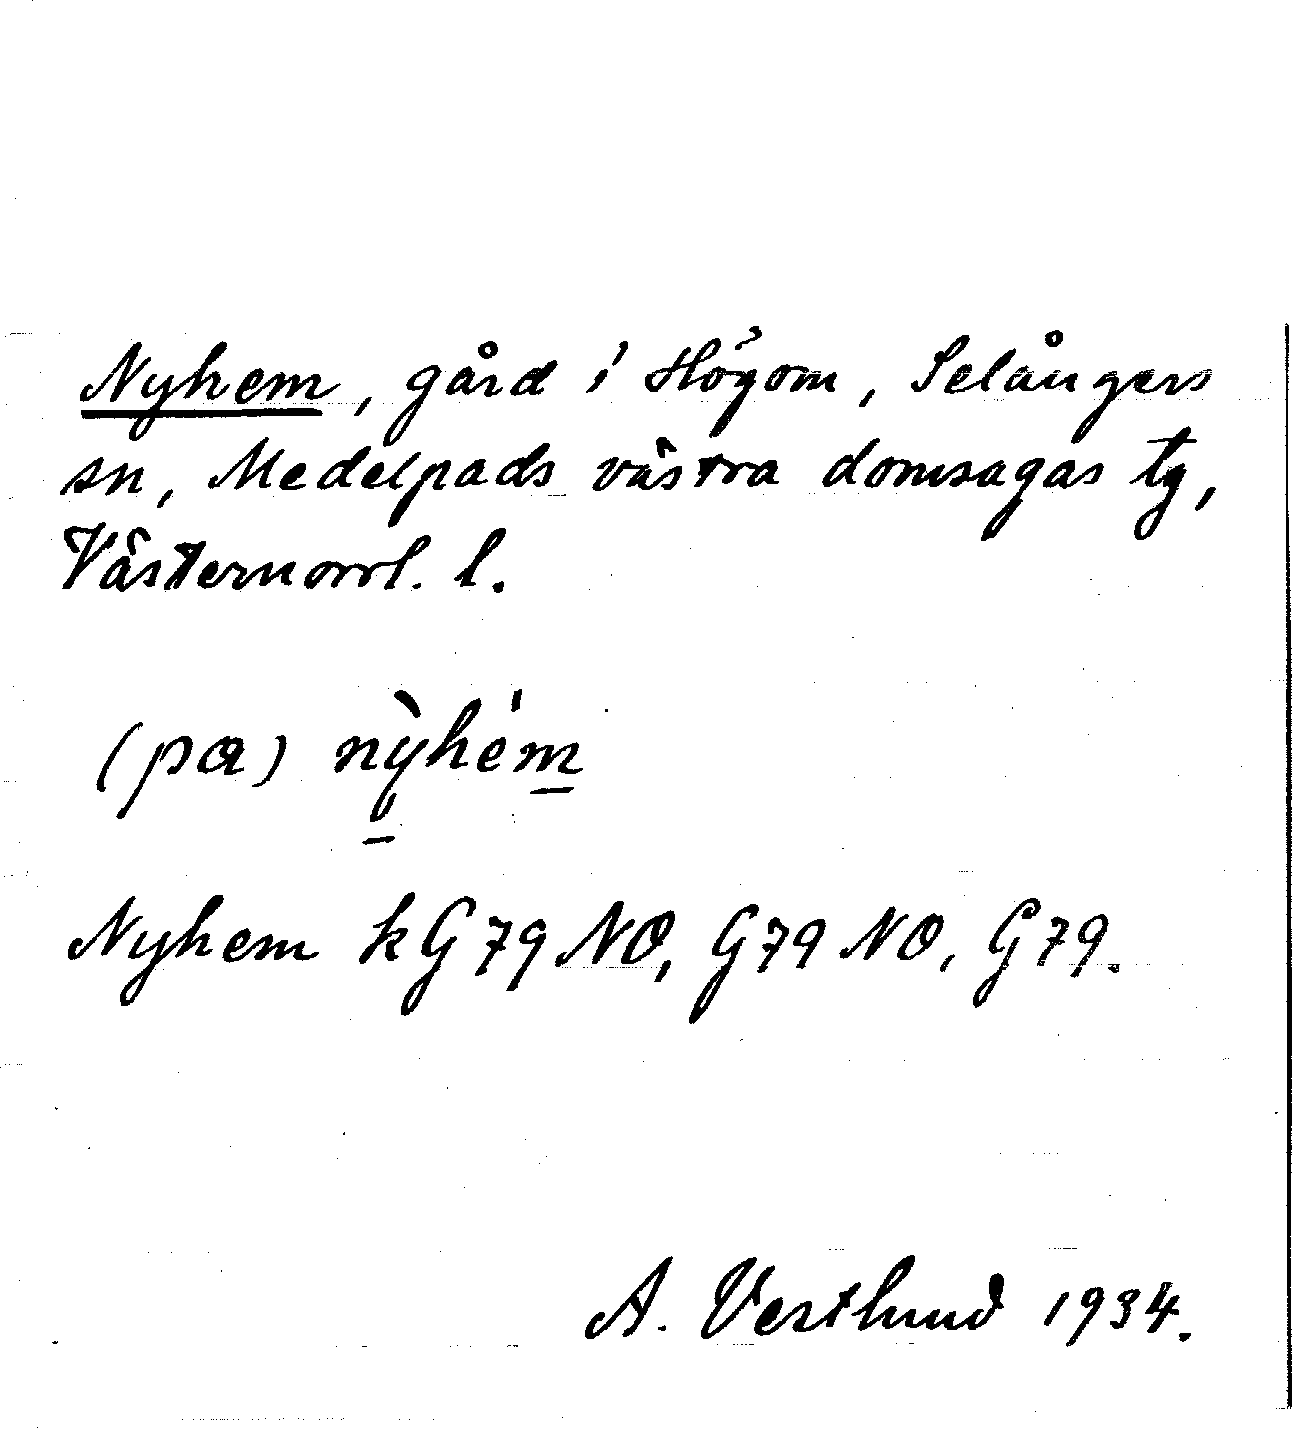 Nyhem, gård i Högom, Selångers
sn, Medelpads västra domsagas tg,
Västernorrl. l.
(pa) ǹyhém
Nyhem kG79NO, G79NO, G79.
A. Vestlund 1934.